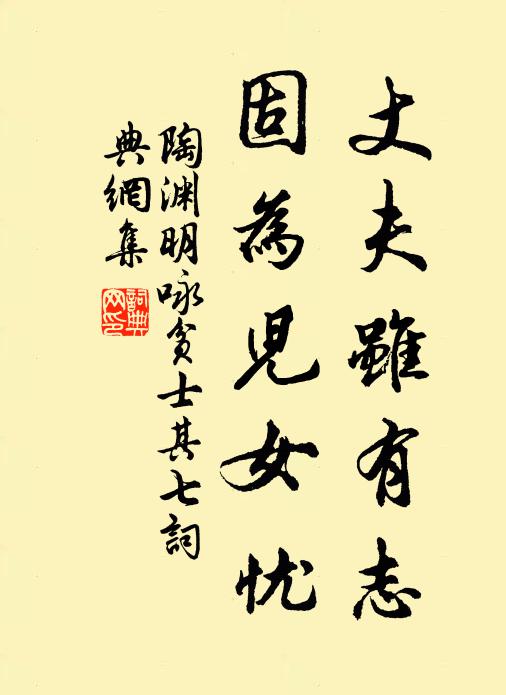 丈夫雖有志
固為兒女忧
陶渊明咏貧士其七詞
典網集
詞典
网印